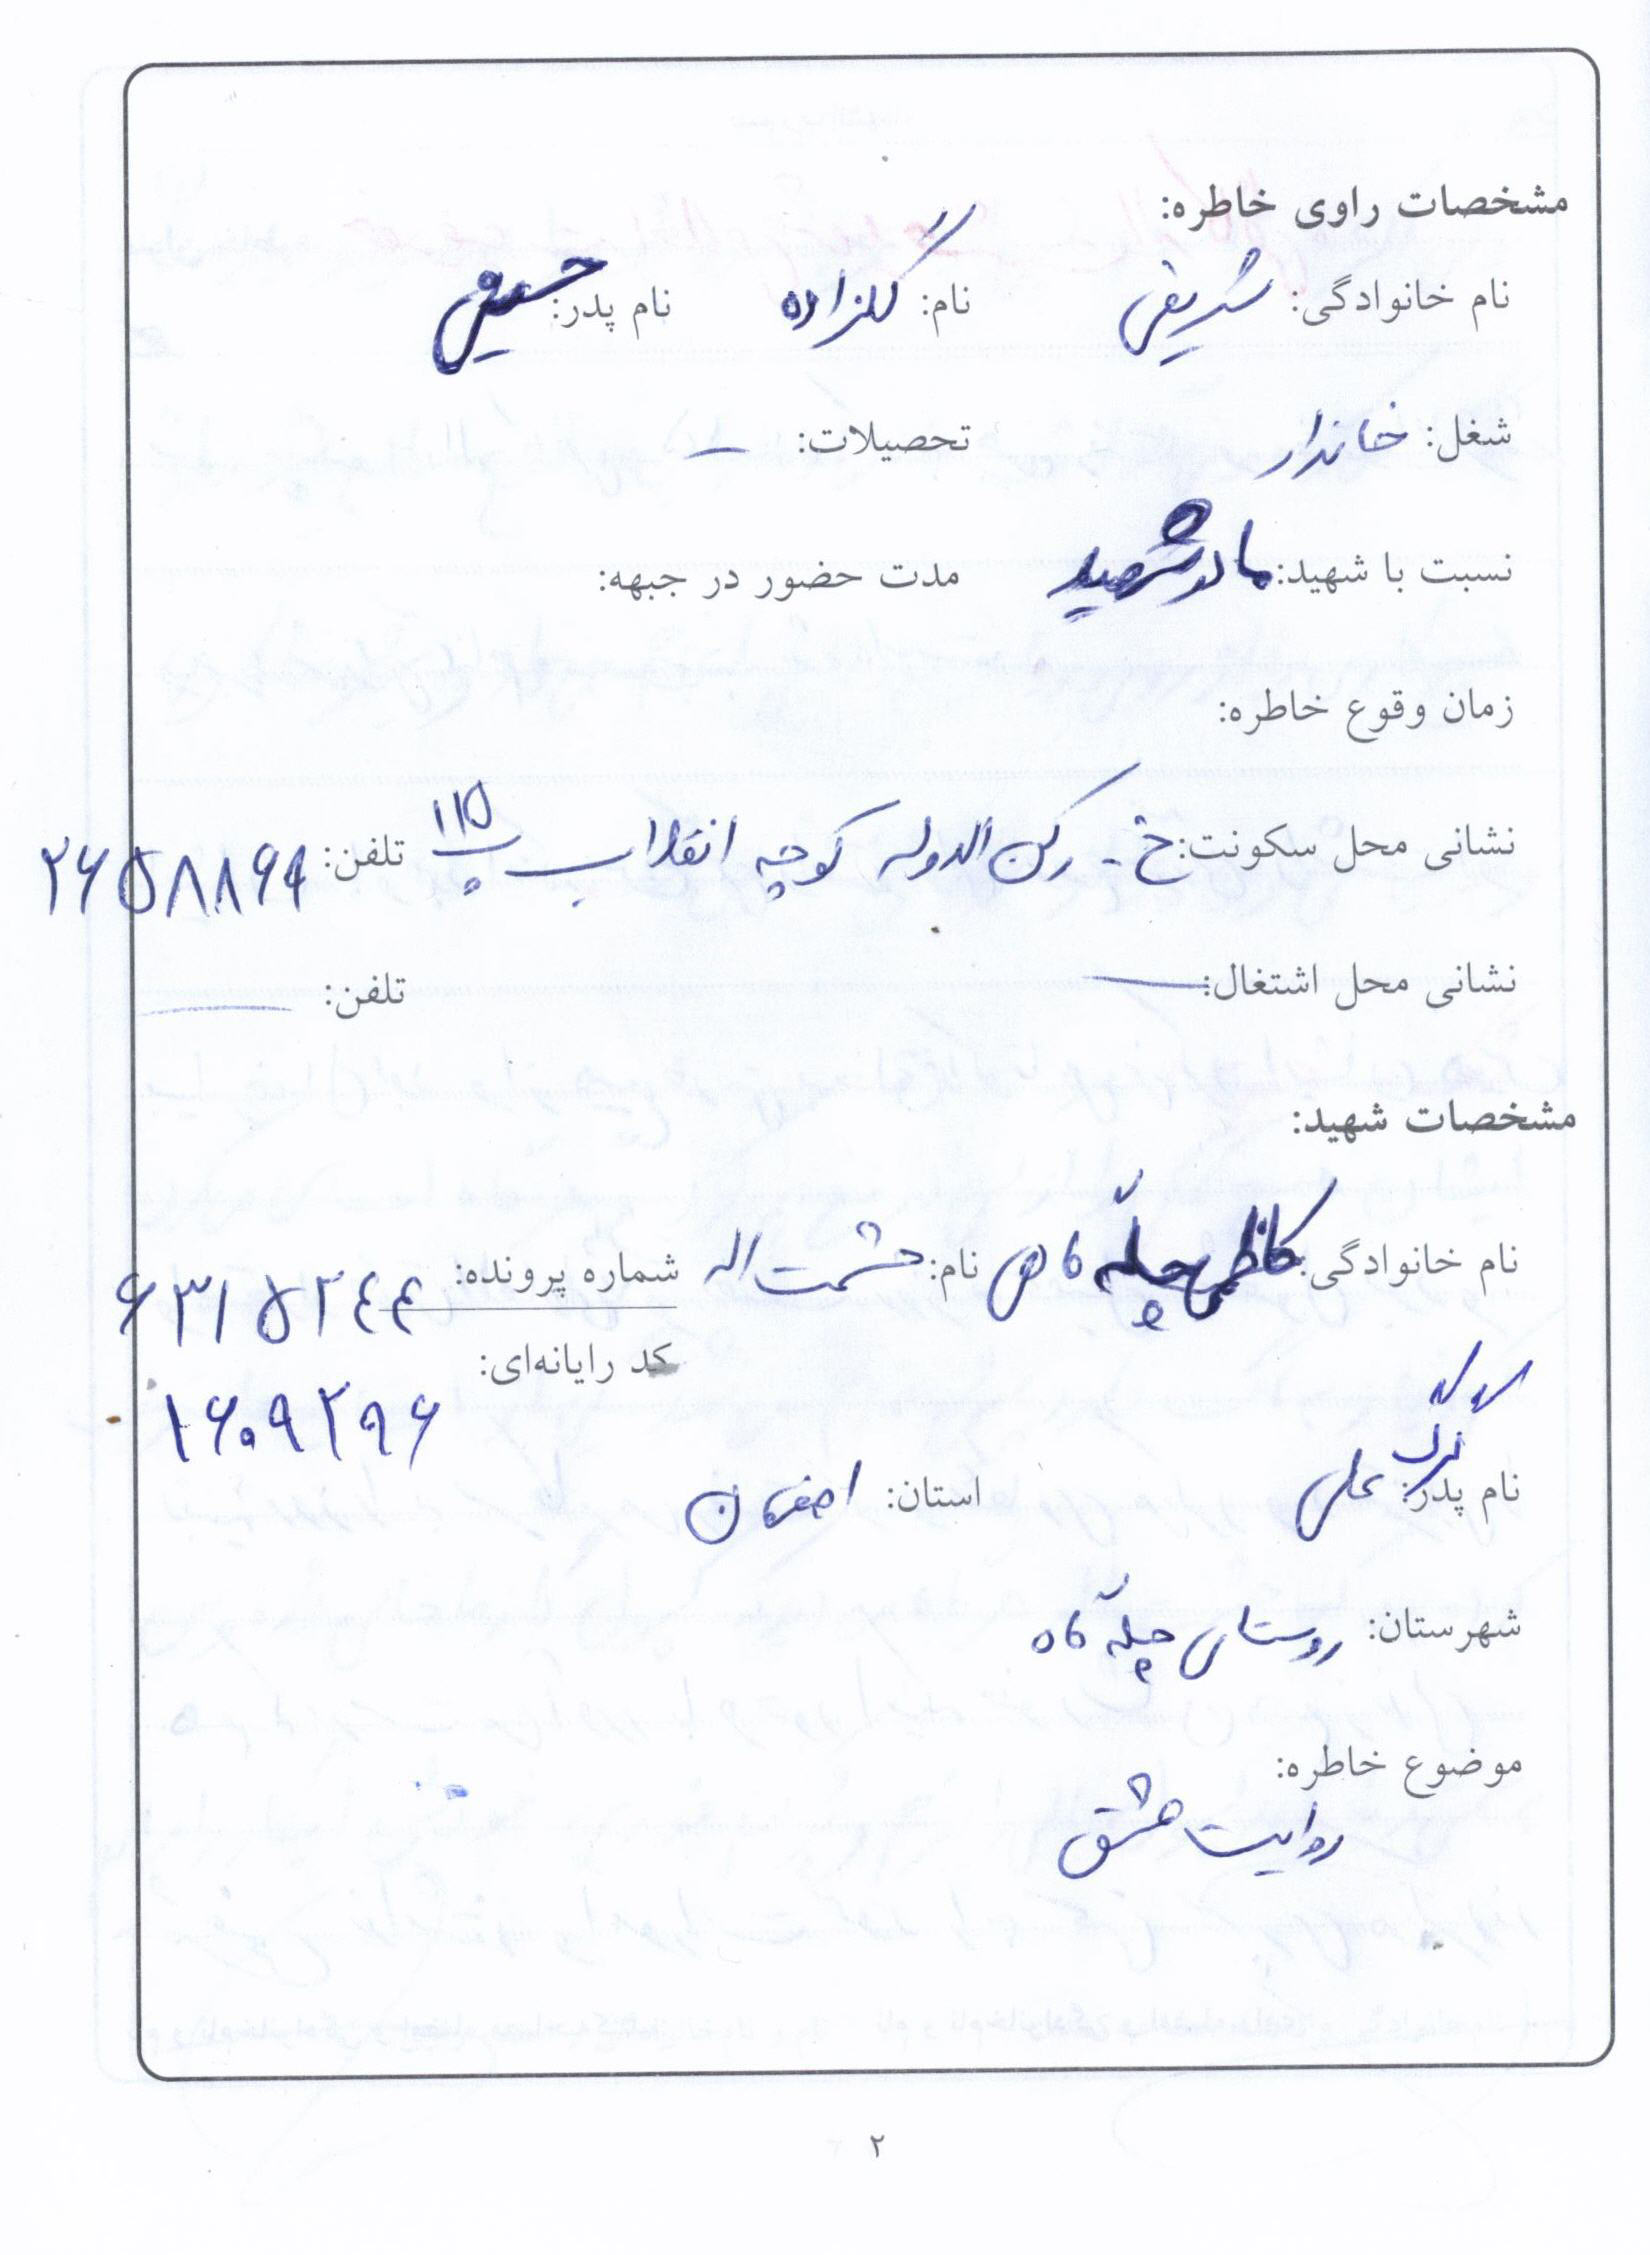 مشخصات راوی خاطره:
نام خانوادگی: شریفی نام: گلزاده نام پدر:
شغل: خاندار تحصیلات: -
نسبت با شهید: مادر شهید مدت حضور در جبهه:
زمان وقوع خاطره:
نشانی محل سکونت: خ - رکن الدوله کوچه انقلاب پ ۱۱۵ تلفن: ۲۶۵۸۸۶۹
نشانی محل اشتغال: تلفن:
مشخصات شهید:
نام خانوادگی: کاظمی چله گاهی نام: حشمت اله شماره پرونده: ۶۳۱۵۲۴۴
کد رایانه‌ای: ۱۶۰۹۲۹۶
نام پدر: گرگ علی استان: اصفهان
شهرستان: روستای چله گاه
موضوع خاطره:
روایت عشق
۲